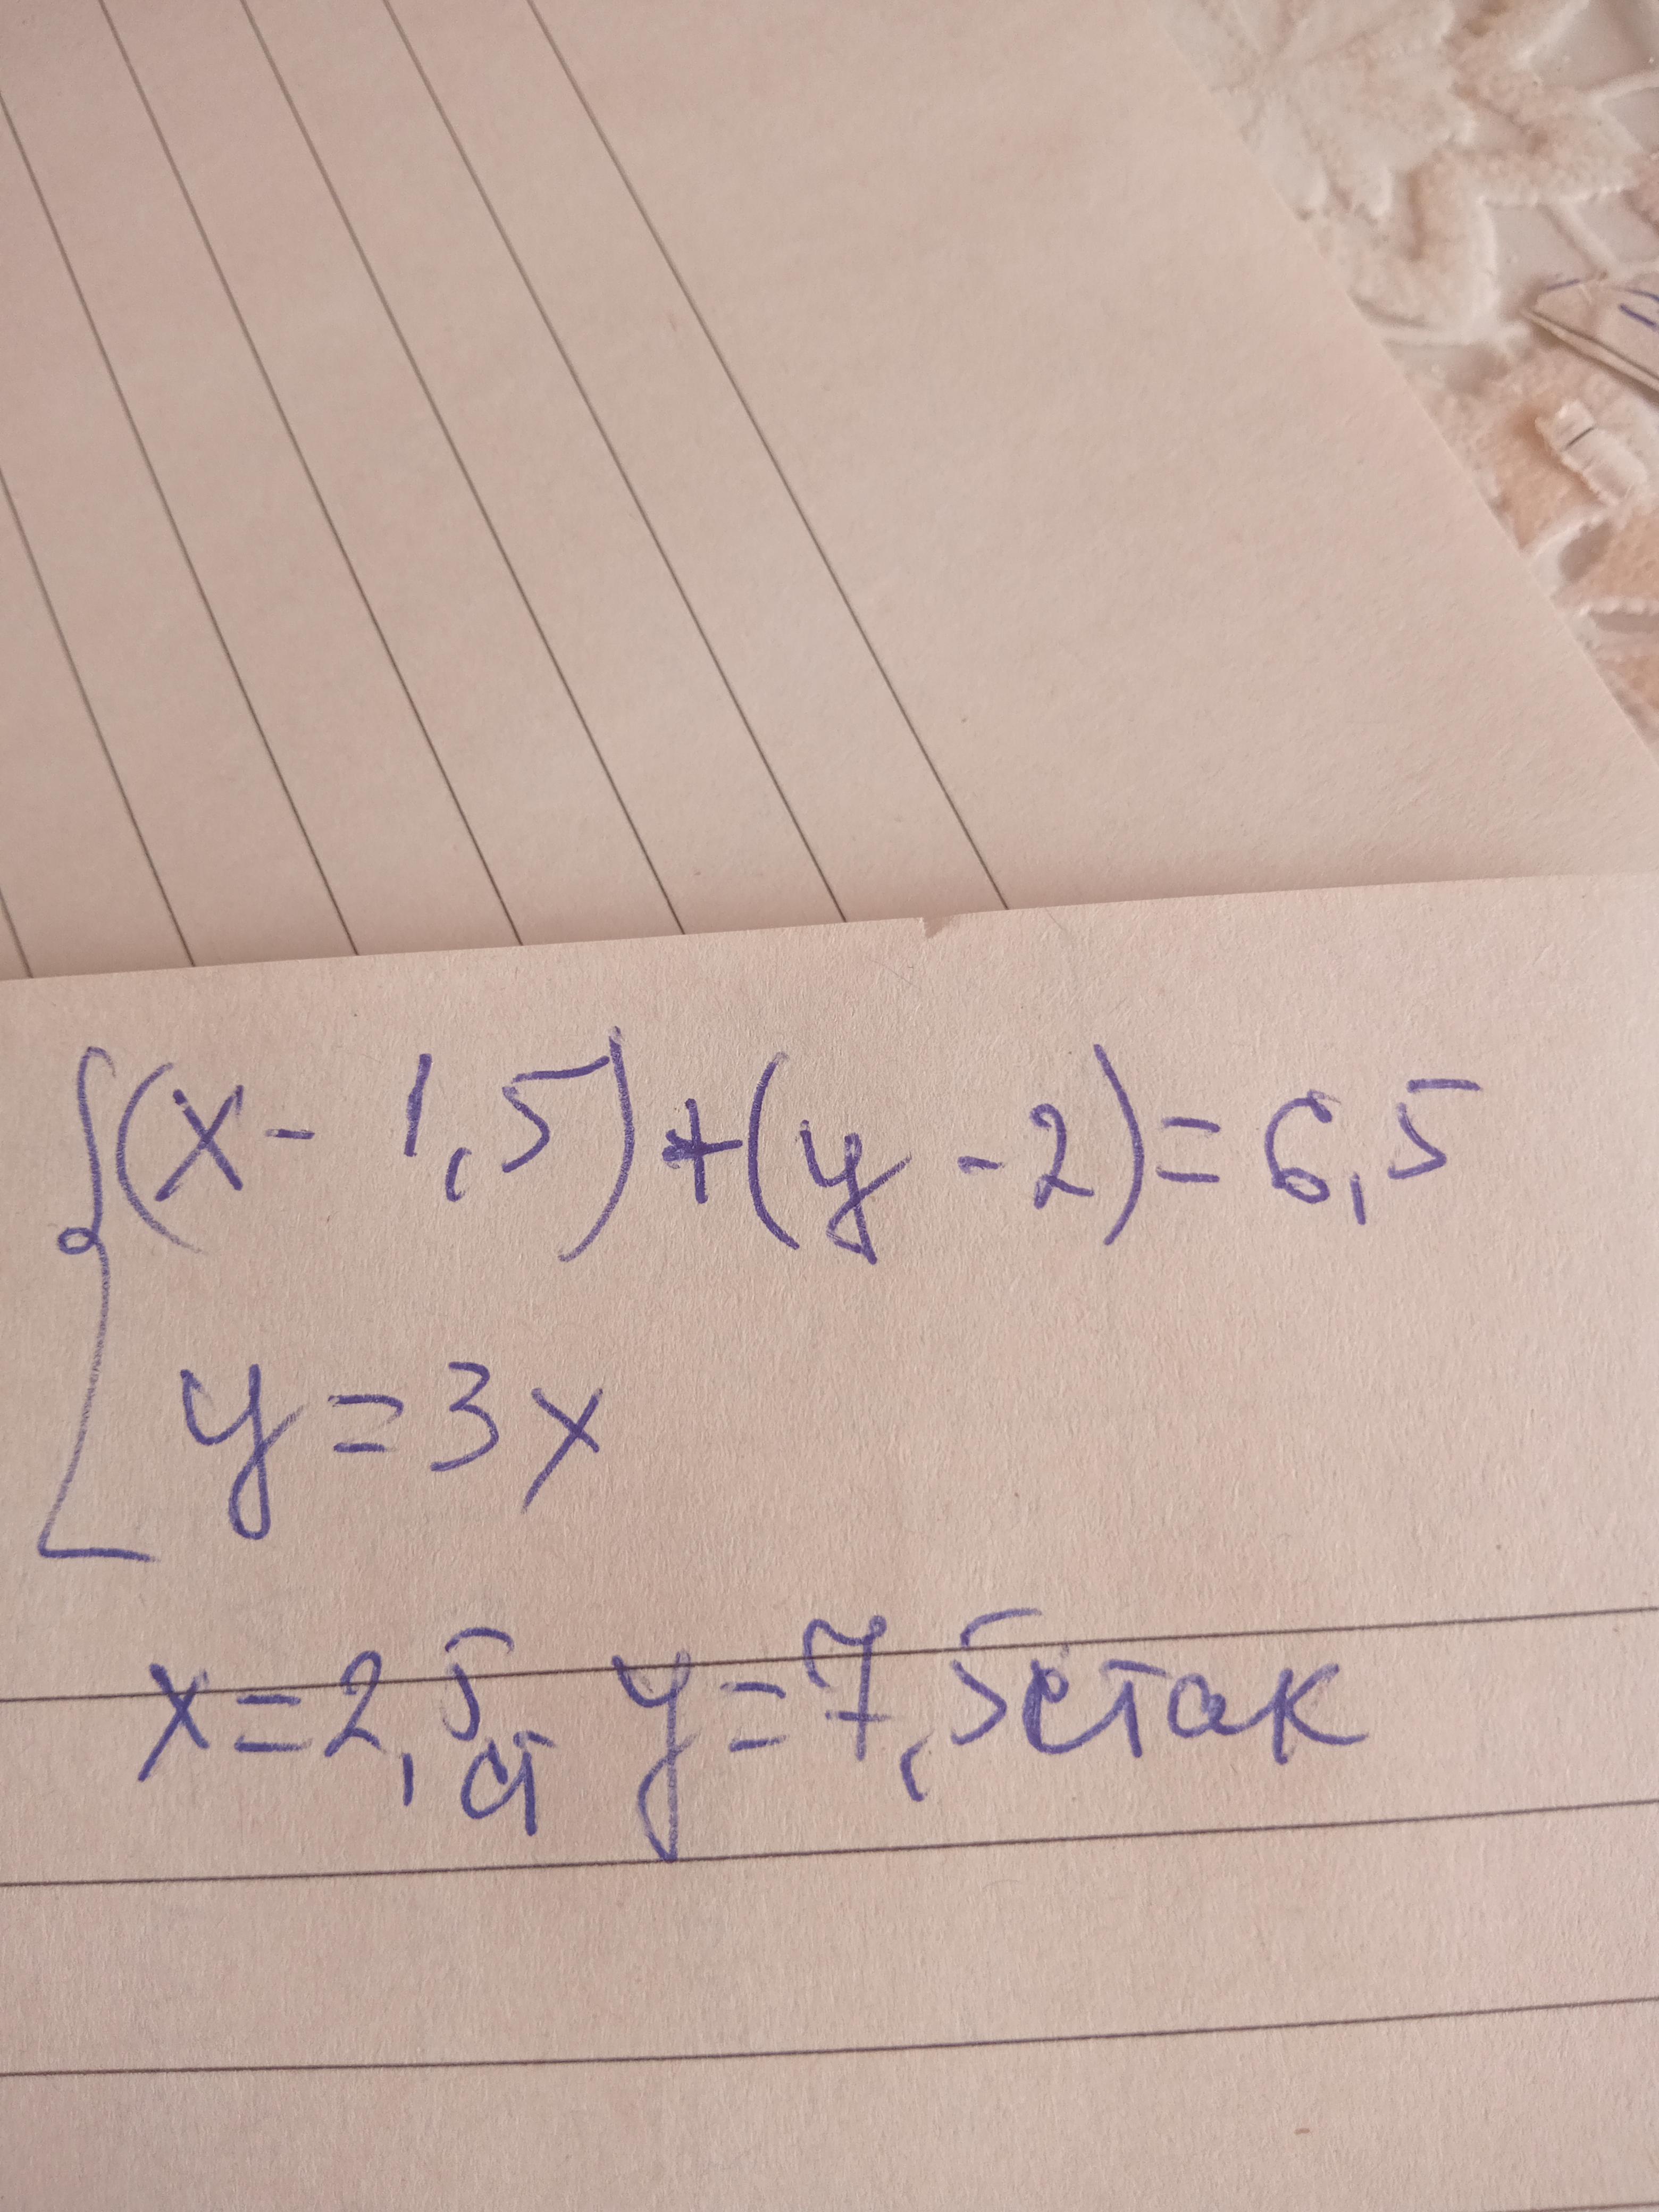 (x - 1,5) + (y - 2) = 6,5
y = 3x
x = 2,5 y = 7,5 стак
ст